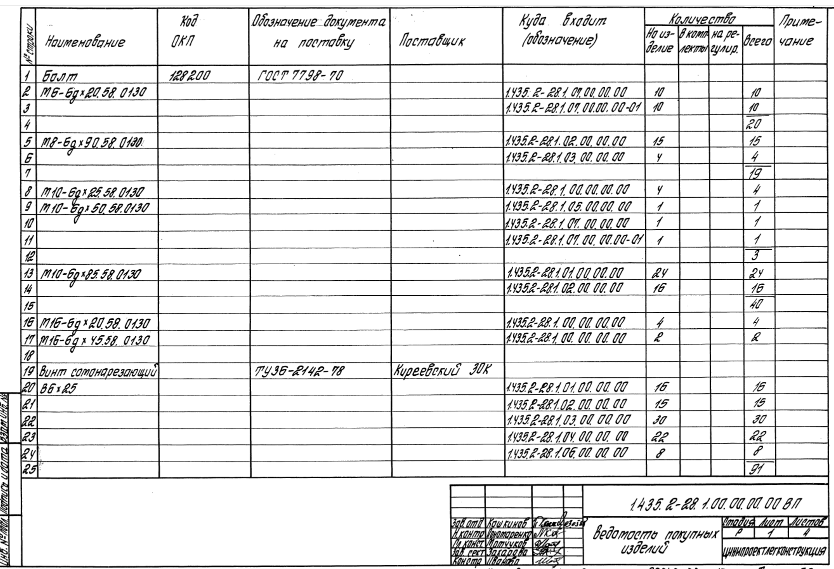 № строки Наименование Код ОКП Обозначение документа на поставку Поставщик Куда входит (обозначение) Количество На изделие В комплекты на регулир. Всего Примечание
1 Болт 128200 ГОСТ 7798-70
2 М6-6g×20.58.0130 1.435.2-28.1.07.00.00.00 10 10
3 1.435.2-28.1.07.00.00.00-01 10 10
4 20
5 М8-6g×90.58.0130 1.435.2-28.1.02.00.00.00 15 15
6 1.435.2-28.1.03.00.00.00 4 4
7 19
8 М10-6g×25.58.0130 1.435.2-28.1.00.00.00.00 4 4
9 М10-6g×50.58.0130 1.435.2-28.1.05.00.00.00 1 1
10 1.435.2-28.1.07.00.00.00 1 1
11 1.435.2-28.1.07.00.00.00-01 1 1
12 3
13 М10-6g×85.58.0130 1.435.2-28.1.01.00.00.00 24 24
14 1.435.2-28.1.02.00.00.00 16 16
15 40
16 М16-6g×20.58.0130 1.435.2-28.1.00.00.00.00 4 4
17 М16-6g×45.58.0130 1.435.2-28.1.00.00.00.00 2 2
18
19 Винт самонарезающий ТУ36-2142-78 Киреевский ЗОК
20 В6×25 1.435.2-28.1.01.00.00.00 16 16
21 1.435.2-28.1.02.00.00.00 15 15
22 1.435.2-28.1.03.00.00.00 30 30
23 1.435.2-28.1.04.00.00.00 22 22
24 1.435.2-28.1.06.00.00.00 8 8
25 91
1.435.2-28.1.00.00.00.00 ВП
Зав. отд
Н. контр
Гл. конст.
Зав. сект Захарова
Констр. Иванова
Ведомость покупных изделий
Стадия Лист Листов
Р 1 4
ЦНИИПРОЕКТЛЕГКОНСТРУКЦИЯ
Инв. № подл. Подпись и дата Взам. инв. №